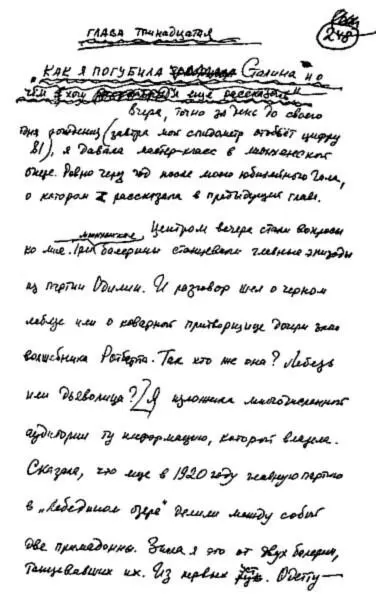 248
ГЛАВА ТРИНАДЦАТАЯ
"КАК Я ПОГУБИЛА Сталина и о
чём я хочу ещё рассказать"
Вчера, точно за день до своего
дня рождения (завтра мой спидометр отобьёт цифру
81), я давала мастер-класс в мюнхенской
опере. Ровно через год после моего юбилейного Гала,
о котором я рассказала в предыдущей главе.
Центром вечера стали вопросы
ко мне. Три мюнхенские балерины станцевали главные эпизоды
из партии Одиллии. И разговор шёл о чёрном
лебеде или о коварной притворщице дочери злого
волшебника Ротбарта. Так кто же она? Лебедь
или дьяволица? [Я изложила многочисленной
аудитории ту информацию, которой владела.
Сказала, что ещё в 1920 году главную партию
в "Лебедином озере" делили между собой
две примадонны. Знала я это от двух балерин,
танцевавших их. Из первых уст. Одетту—